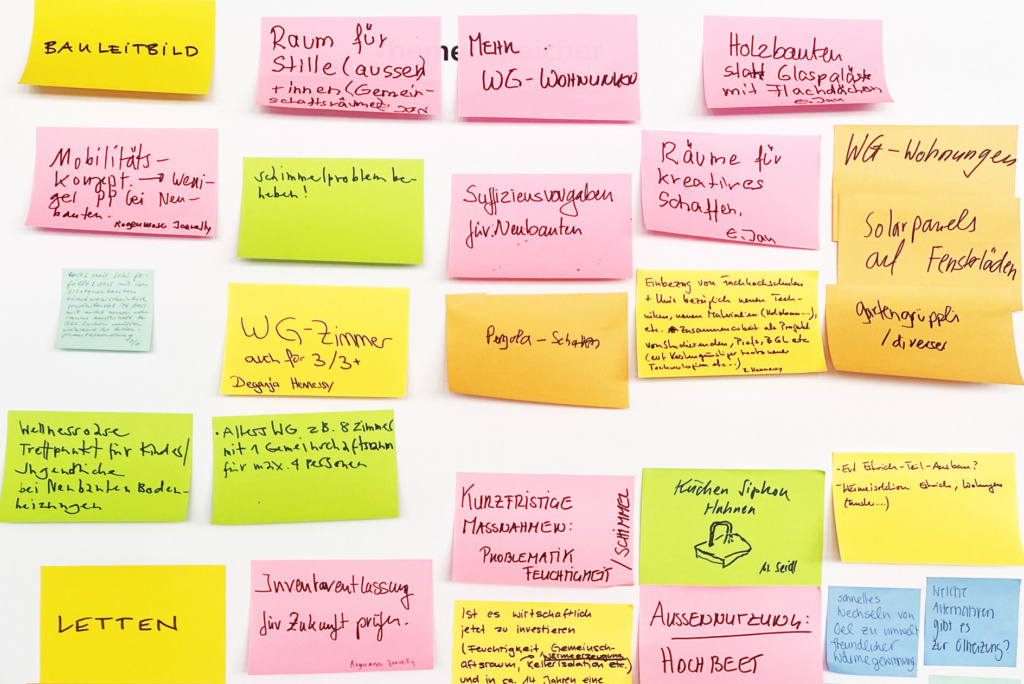 BAULEITBILD
Raum für
Stille (aussen
+ innen (Gemein-
schaftsräume.
E. JAN
MEHR
WG-WOHNUNGEN
Holzbauten
statt Glaspaläste
mit Flachdächern
E. Jan
Mobilitäts-
konzept. → weni-
ger PP bei Neu-
bauten.
Schimmelproblem be-
heben!
Suffizienzvorgaben
für Neubauten
Räume für
kreatives
Schaffen.
E. Jan
WG-Wohnungen
Solarpanels
auf Fensterläden
gartengrüppli
/ diverses
WG-Zimmer
auch für 3/3+
Deganja Hennessy
Pergola - Schatten
Einbezug von Fachhochschulen
+ Unis bezüglich neuen Tech-
niken, neuen Materialien
etc. Zusammenarbeit als Projekt
von Studierenden, Profs, BGL etc
Technologien etc...)
Z. Hennessy
Wellnessoase
Treffpunkt für Kinder/
Jugendliche
bei Neubauten Boden-
heizungen
• Alters WG z.B. 8 Zimmer
mit 1 Gemeinschaftsraum
für max. 4 Personen
KURZFRISTIGE
MASSNAHMEN:
PROBLEMATIK
FEUCHTIGKEIT
/SCHIMMEL
Küchen Siphon
Hahnen
M. Seidl
- Evt Estrich-Teil-Ausbau?
- Wärmeisolation Estrich, Wohnungen
(Fenster...)
LETTEN
Inventarentlassung
für Zukunft prüfen.
Ist es wirtschaftlich
jetzt zu investieren
(Feuchtigkeit, Gemeinsch-
aftsraum, Wärmeerzeugung
Kellerisolation etc.)
und in ca. 14 Jahren eine
AUSSENNUTZUNG:
HOCHBEET
schnelles
Wechseln von
Oel zu umwelt
freundlicher
Wärmegewinnung
Welche
Alternativen
gibt es
zur Ölheizung?